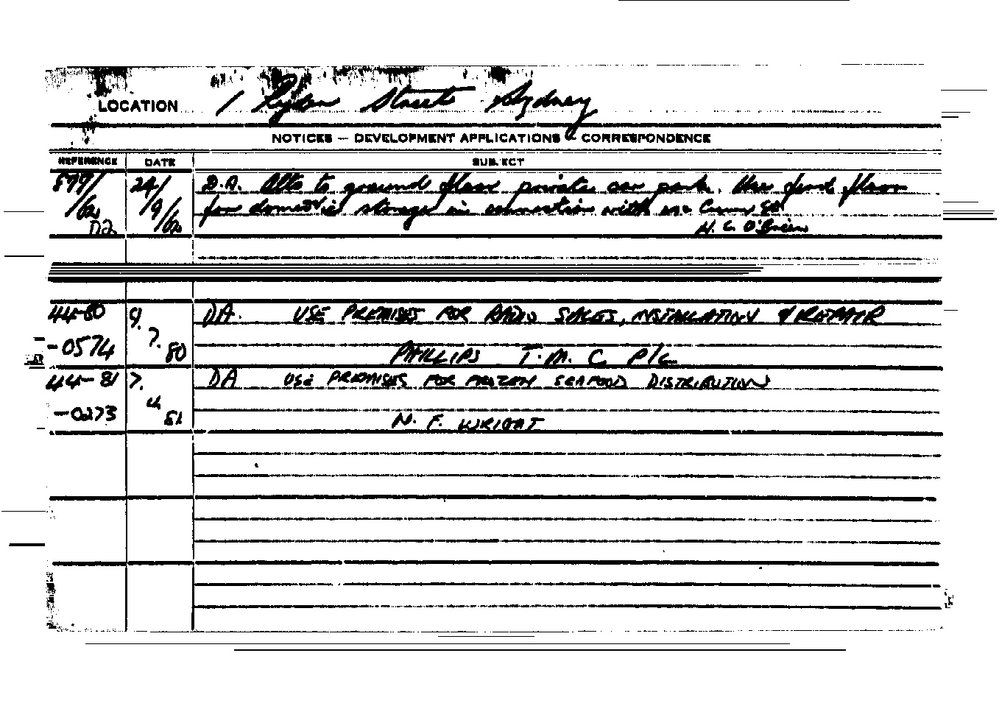 LOCATION 1 Ryder Street Sydney
NOTICES — DEVELOPMENT APPLICATIONS — CORRESPONDENCE
REFERENCE DATE SUBJECT
879/ 24/ D.A. Alts to ground floor private car park. Use grnd floor
/62 /9 for domestic storage in connection with use
D2 /62 N. C. O'Brien
44-80 9. DA. USE PREMISES FOR RADIO SALES, INSTALLATION & REPAIR
-0574 7. 80 PHILLIPS T.M.C. P/L
44-81 7. DA USE PREMISES FOR FROZEN SEAFOOD DISTRIBUTION
-0273 4. 81 N. F. WRIGHT